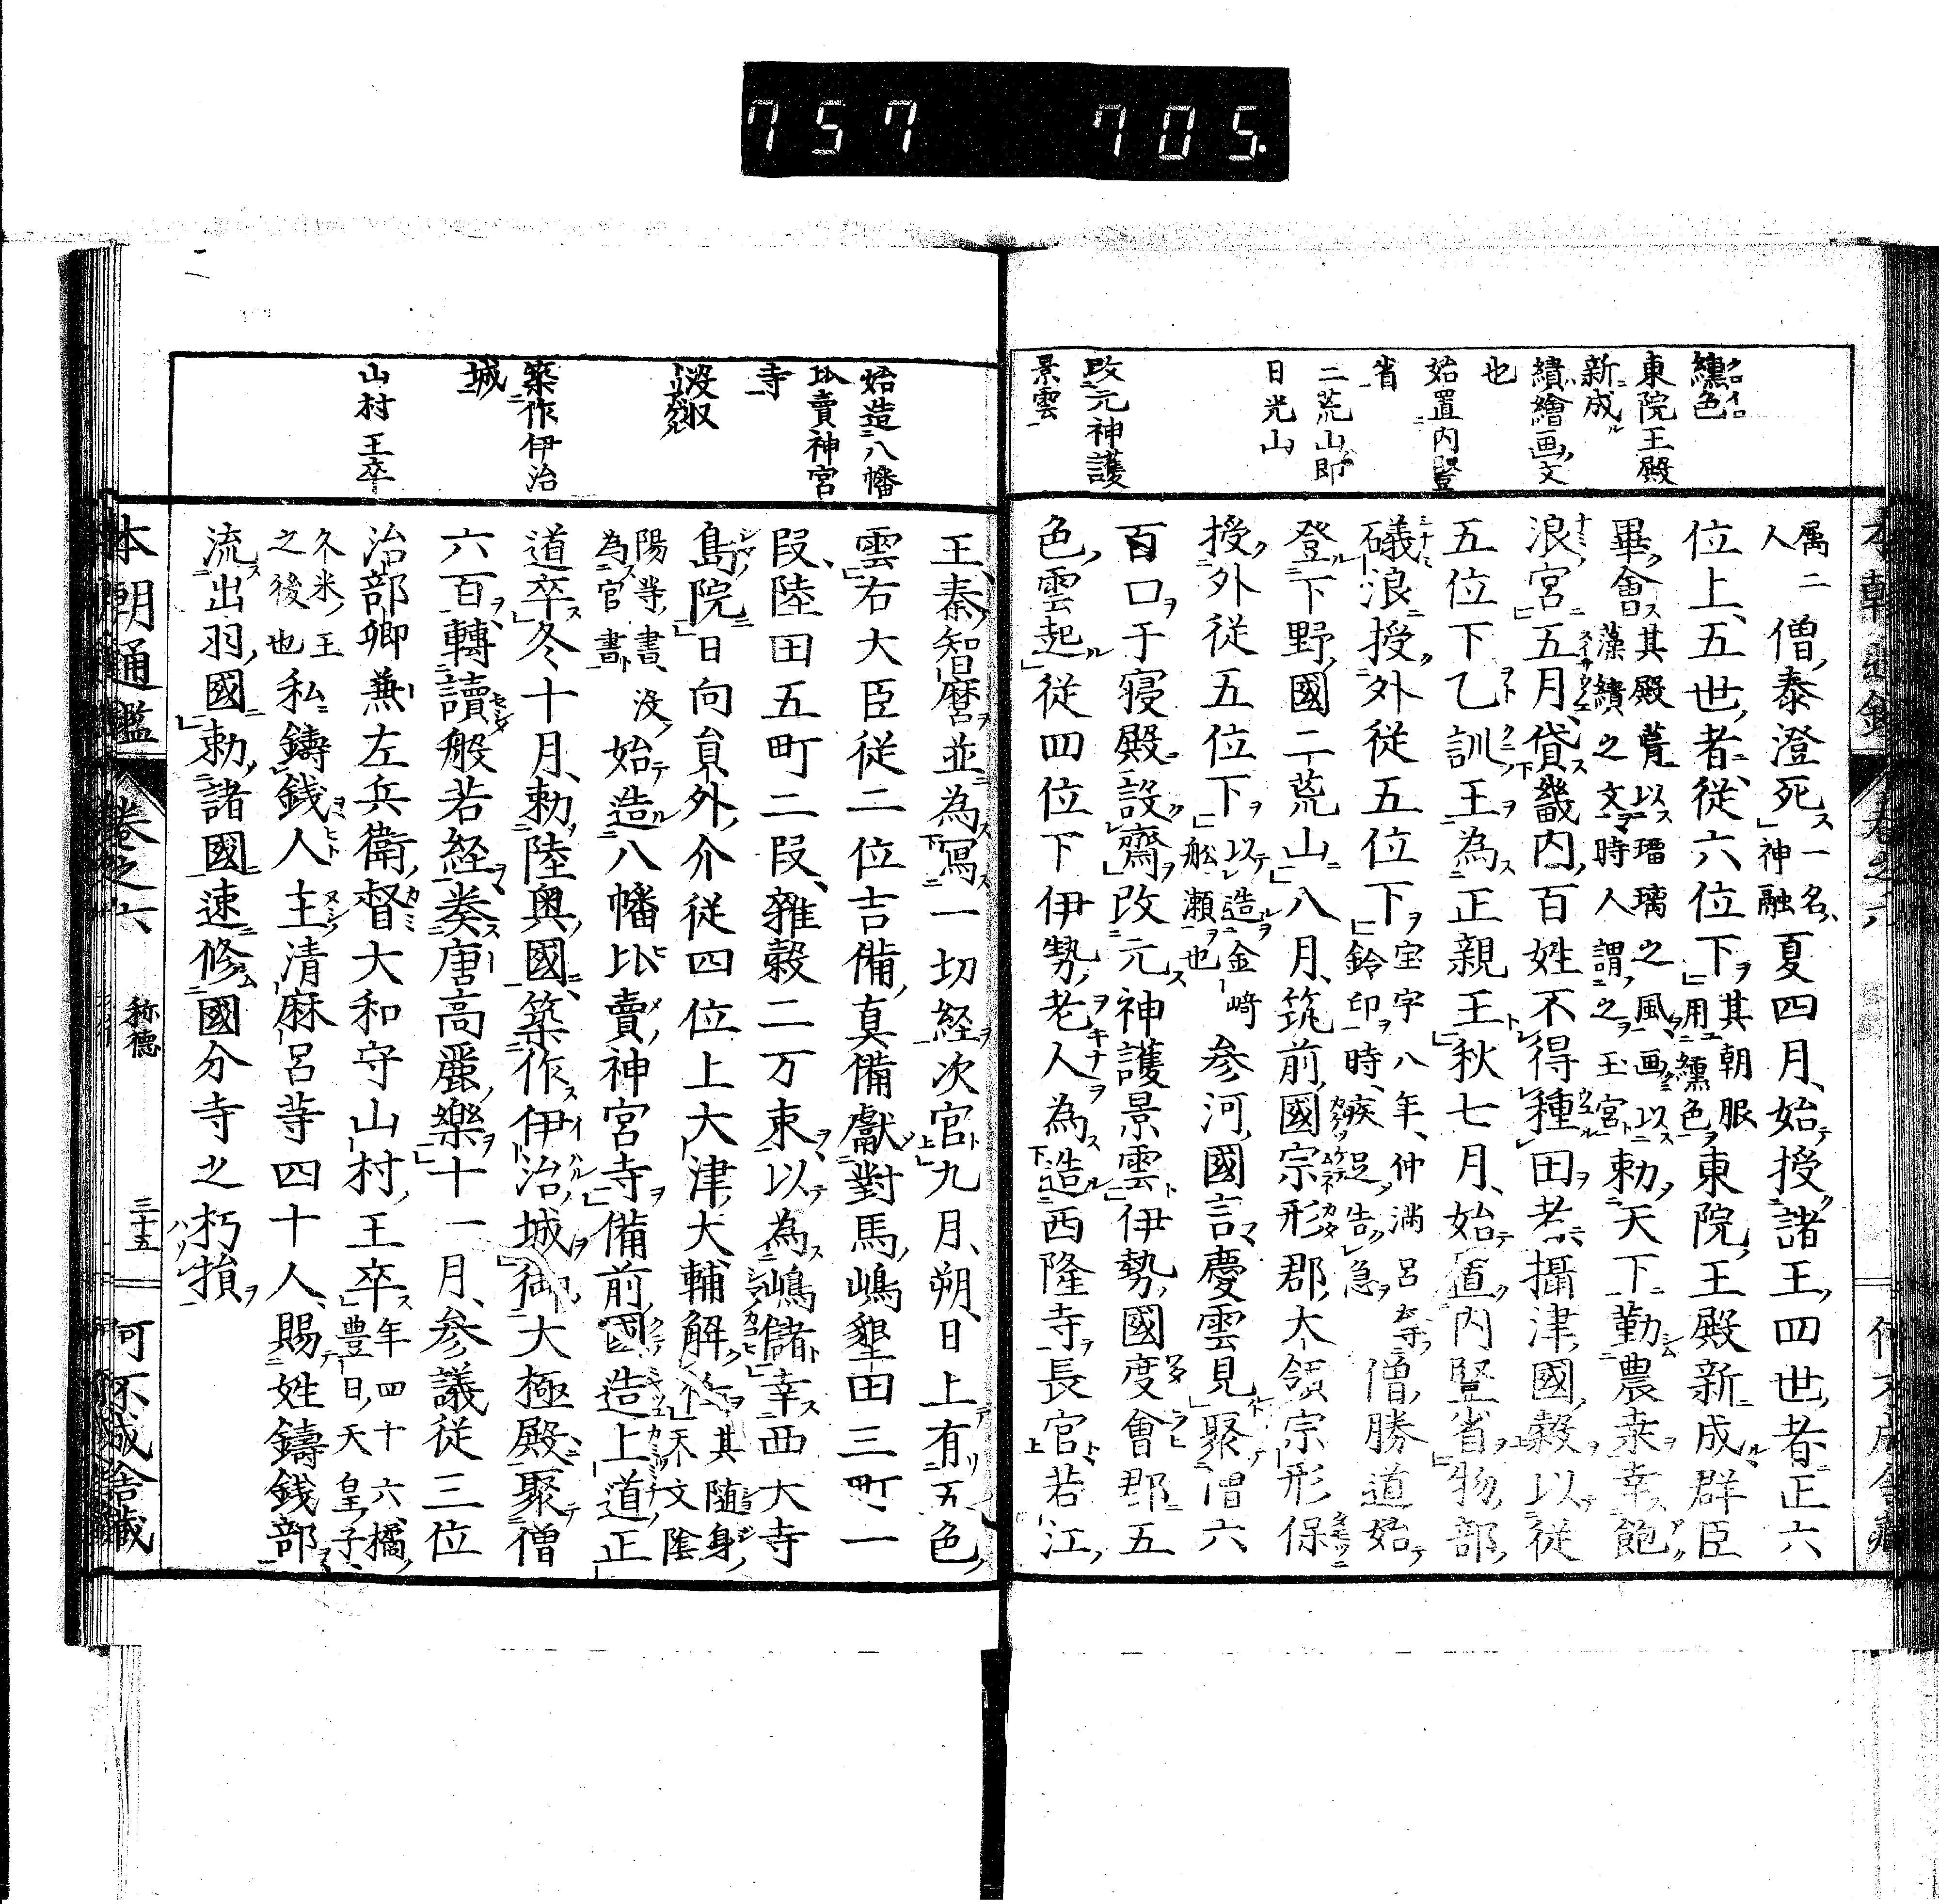 757 705.
纁色
東院王殿
新成
繢繪画文
也
始置内竪
省
二荒山即
日光山
改元神護
景雲
属二僧泰澄死一名
人神融夏四月始授諸王四世者正六
位上五世者從六位下其朝服用纁色東院王殿新成群臣
畢會其殿葺以瑠璃之風画以
藻繢之文時人謂之玉宮勅天下勤農桒幸飽
浪宮五月貸畿内百姓不得種田者攝津國穀以従
五位下乙訓王為正親王秋七月始置内竪省物部
礒浪授外従五位下宝字八年仲満呂等
鈴印時疾足告急僧勝道始
登下野國二荒山八月筑前國宗形郡大領宗形保
授外従五位下以造金﨑
舩瀬也参河國言慶雲見聚僧六
百口于寝殿設齋改元神護景雲伊勢國度會郡五
色雲起従四位下伊勢老人為造西隆寺長官若江
始造八幡
比賣神宮
寺
築作伊治
城
山村王卒
王秦智麿並為寫一切経次官九月朔日上有五色
雲右大臣従二位吉備真備獻對馬嶋墾田三町一
段陸田五町二段雜穀二万束以為嶋儲幸西大寺
島院日向員外介従四位上大津大輔解任其随身
天文陰
陽等書
為官書没始造八幡比賣神宮寺備前國造上道正
道卒冬十月勅陸奥國築作伊治城御大極殿聚僧
六百轉讀般若経奏唐高麗樂十一月参議従三位
治部卿兼左兵衛督大和守山村王卒年四十六橘
豊日天皇子
久米王
之後也私鑄銭人王清麻呂等四十人賜姓鑄銭部
流出羽國勅諸國速修國分寺之朽損
本朝通鑑 巻之六 称徳 三十五